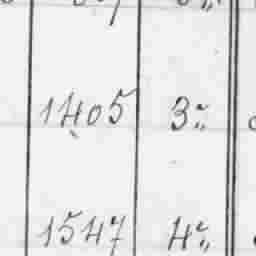 1405 3.,,
1547 4.,,